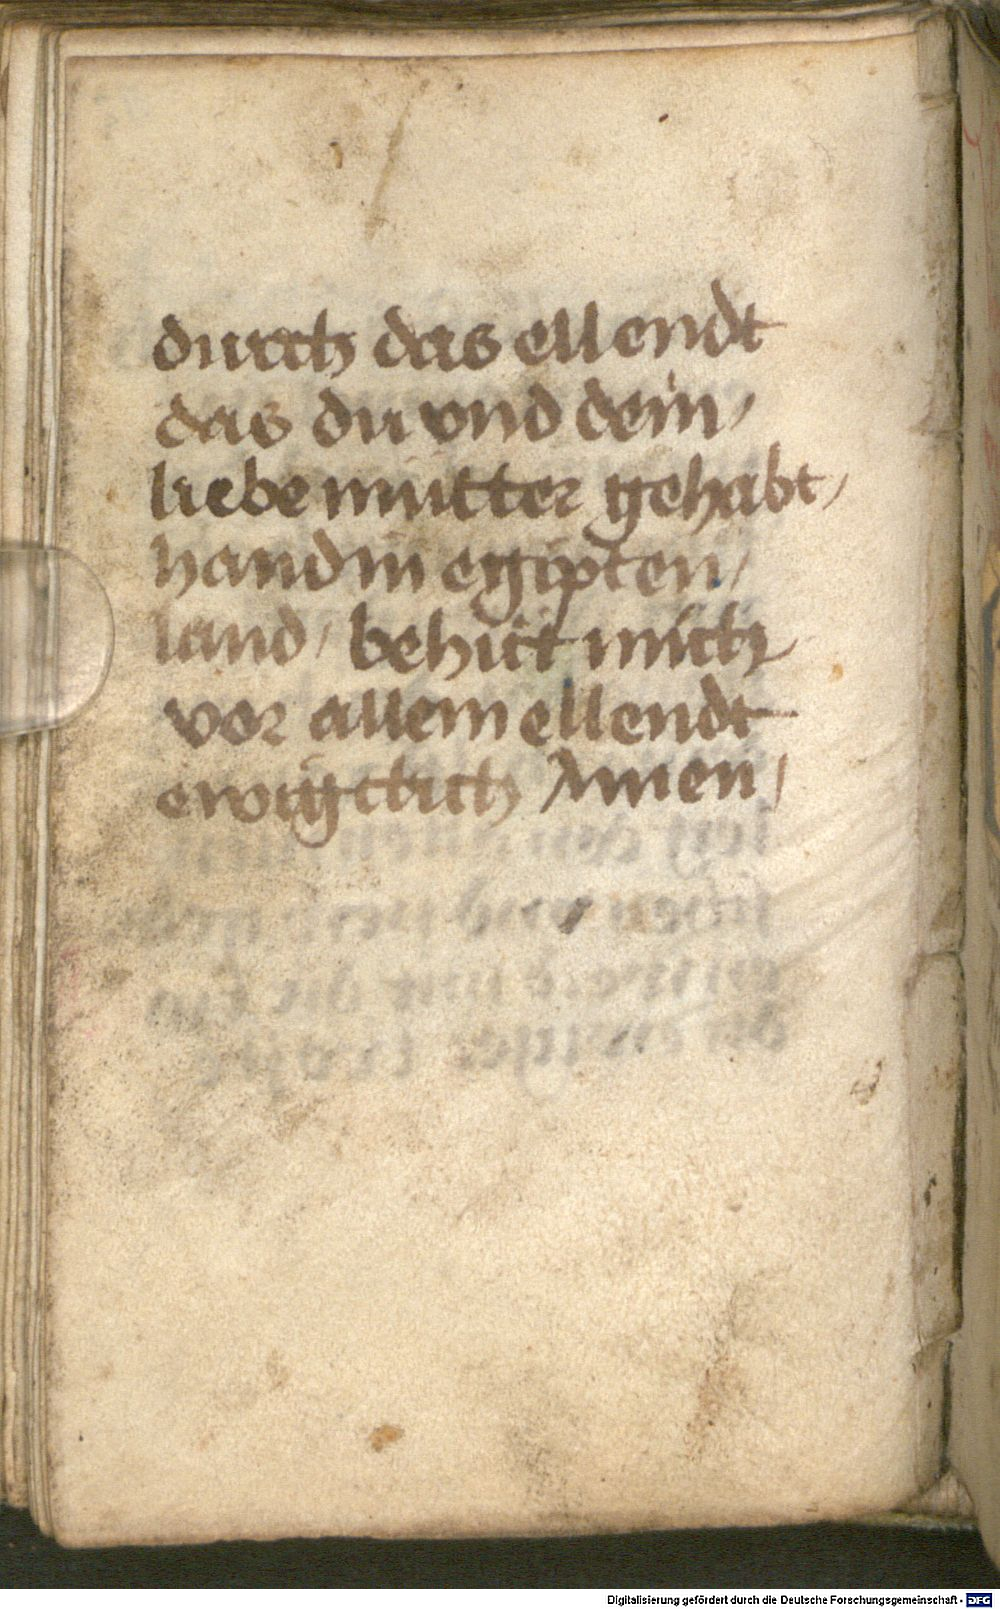 durch das ellendt
das du vnd dein /
liebe mutter gehabt /
hand in egipten /
land / behiet mich
vor allem ellendt
ewigclich Amen /
Digitalisierung gefördert durch die Deutsche Forschungsgemeinschaft - DFG